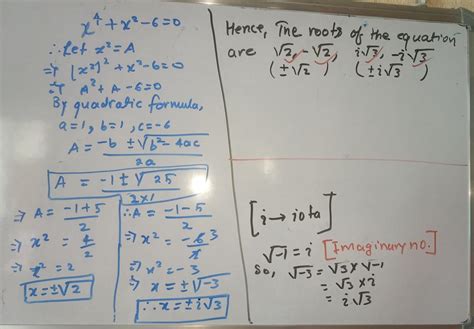 x⁴ + x² - 6 = 0
∴ Let x² = A
⇒ (x²)² + x² - 6 = 0
⇒ A² + A - 6 = 0
By quadratic formula,
a = 1, b = 1, c = -6
A = (-b ± √(b² - 4ac)) / 2a
A = (-1 ± √25) / 2×1
⇒ A = (-1+5)/2
⇒ x² = 4/2
⇒ x² = 2
x = ±√2
∴ A = (-1-5)/2
⇒ x² = -6/2 3
⇒ x² = -3
⇒ x = ±√-3
∴ x = ±i√3
Hence, The roots of the equation
are √2, -√2, i√3, -i√3
(±√2) (±i√3)
[i → iota]
√-1 = i [Imaginary no.]
So, √-3 = √3 × √-1
= √3 × i
= i√3